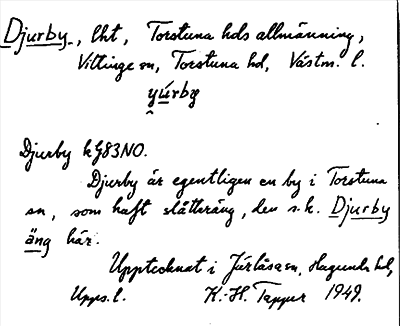 Djurby, lht, Torstuna hds allmänning,
Vittinge sn, Torstuna hd, Västm. l.
yúrbȩ
Djurby kG83NO.
Djurby är egentligen en by i Torstuna
sn, som haft slåtteräng, den s.k. Djurby
äng här.
Upptecknat i Järlåsa sn, Hagunda hd,
Upps. l. K.-H. Tapper 1949.